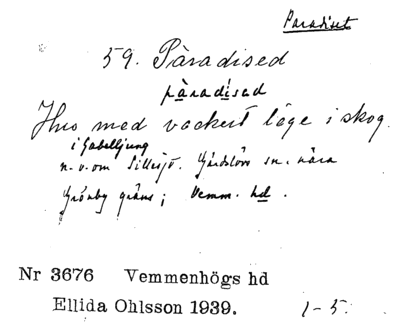 Paradiset
59. Pàradised
pàradísəd
Hus med vackert läge i skog.
i Gabelljung
n.v. om Sillesjö. Gärdslöv sn. nära
Grönby gräns; Vemm. hd.
Nr 3676 Vemmenhögs hd
Ellida Ohlsson 1939. 1-5.